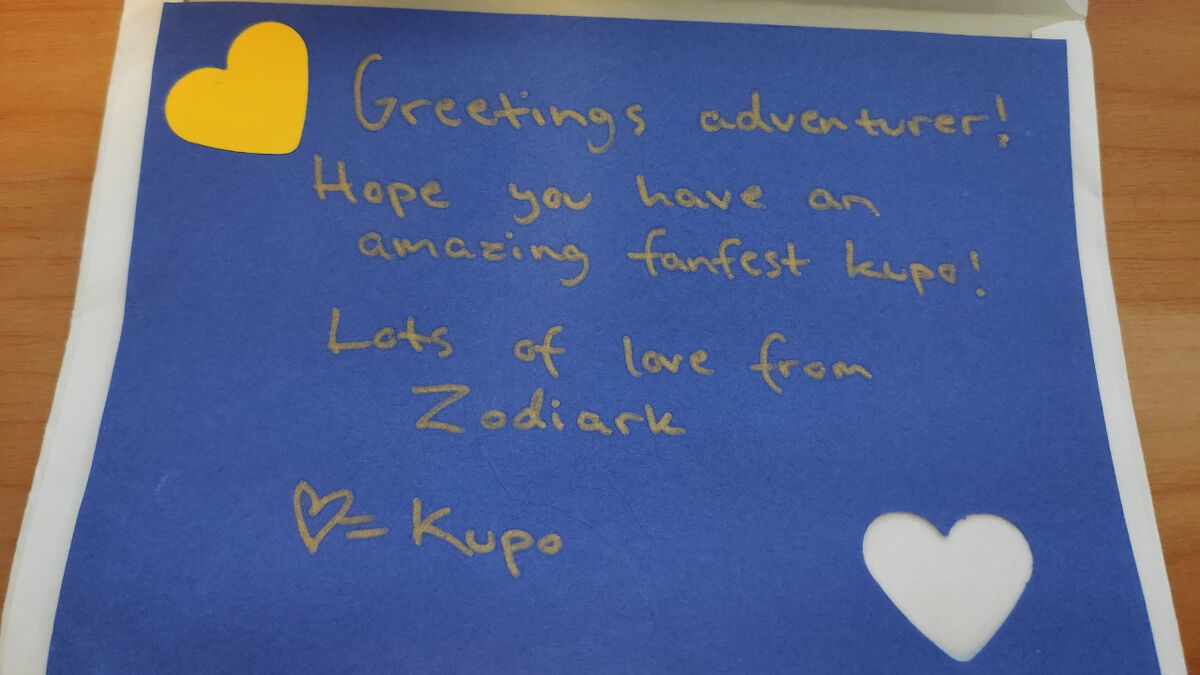 Greetings adventurer!
Hope you have an
amazing fanfest kupo!
Lots of love from
Zodiark
♡= Kupo